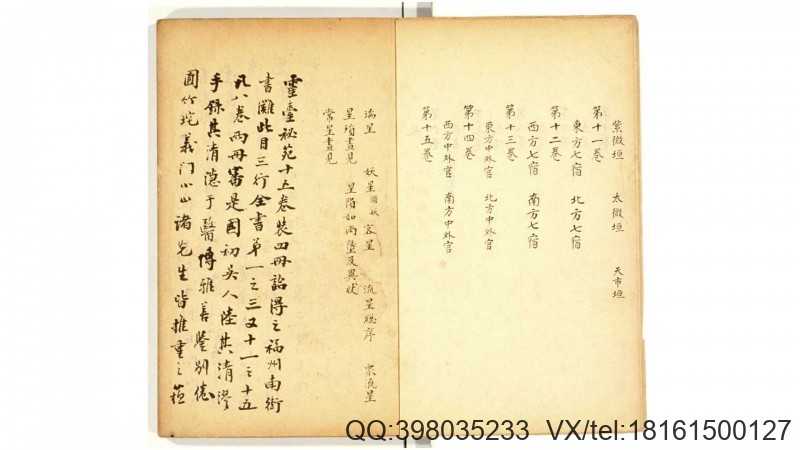 紫微垣 太微垣 天市垣
第十一卷
東方七宿 北方七宿
第十二卷
西方七宿 南方七宿
第十三卷
東方中外官 北方中外官
第十四卷
西方中外官 南方中外官
第十五卷
瑞星 妖星 客星 流星 眾流星
星隕晝見 星隕如雨墜及異狀
常星晝見
靈臺祕苑十五卷裝四冊詒得之福州南街
書灘此目三行全書第一之三又十一之十五
凡八卷兩冊審是國初吳人陸其清
手錄其清隱于醫博雅善鑒別
圃竹垞義門心山諸先生皆推重之
QQ:398035233 VX/tel:18161500127